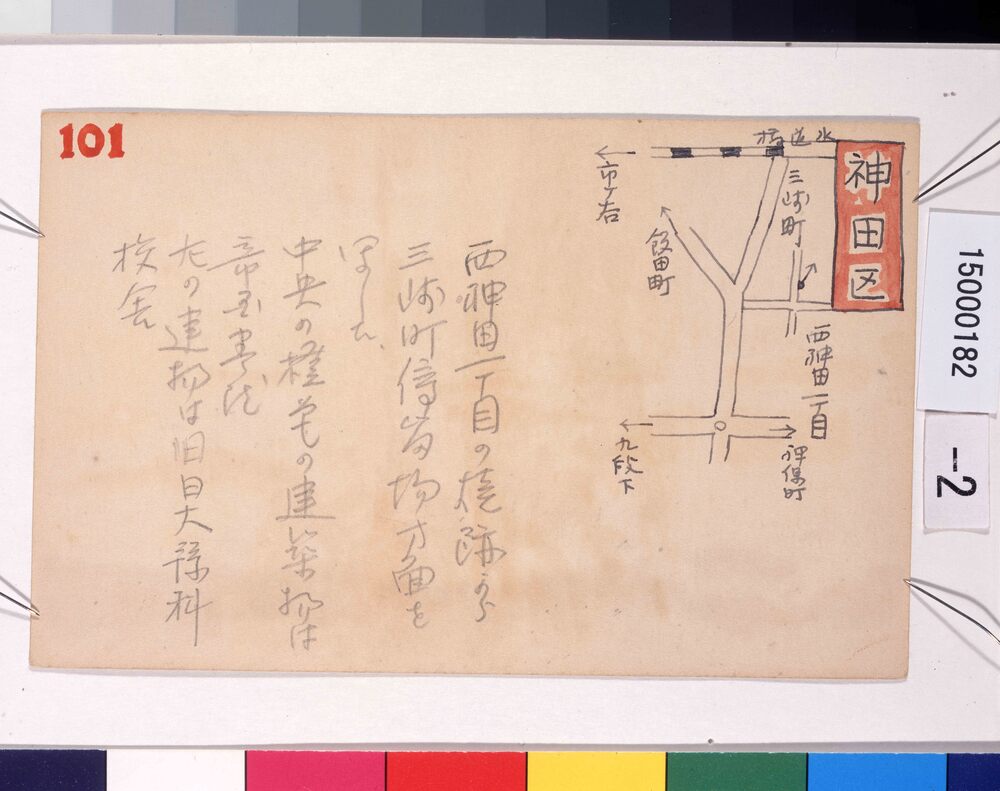 101
神田区
水道橋
三崎町
市ヶ谷
飯田町
西神田一丁目
神保町
九段下
西神田一丁目の焼跡から
三崎町停留場方面を
写した、
中央の建築物は
左の建物は旧日大予科
校舎
15000182
-2